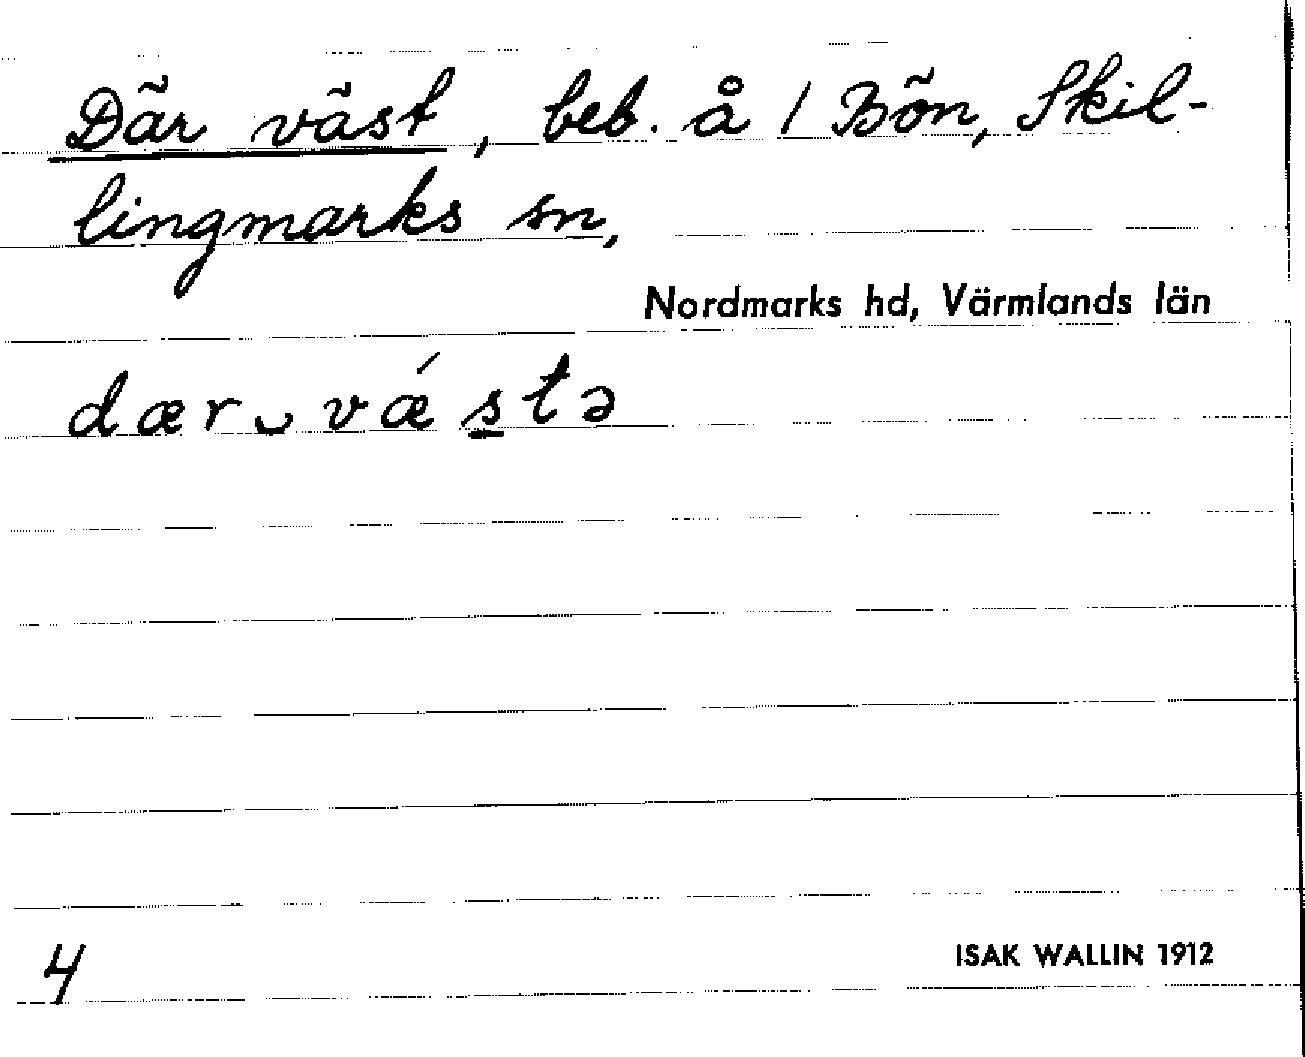 Där väst, beb. å 1 Bön, Skil-
lingmarks sn,
Nordmarks hd, Värmlands län
dær‿vǽs̠tə
4
ISAK WALLIN 1912